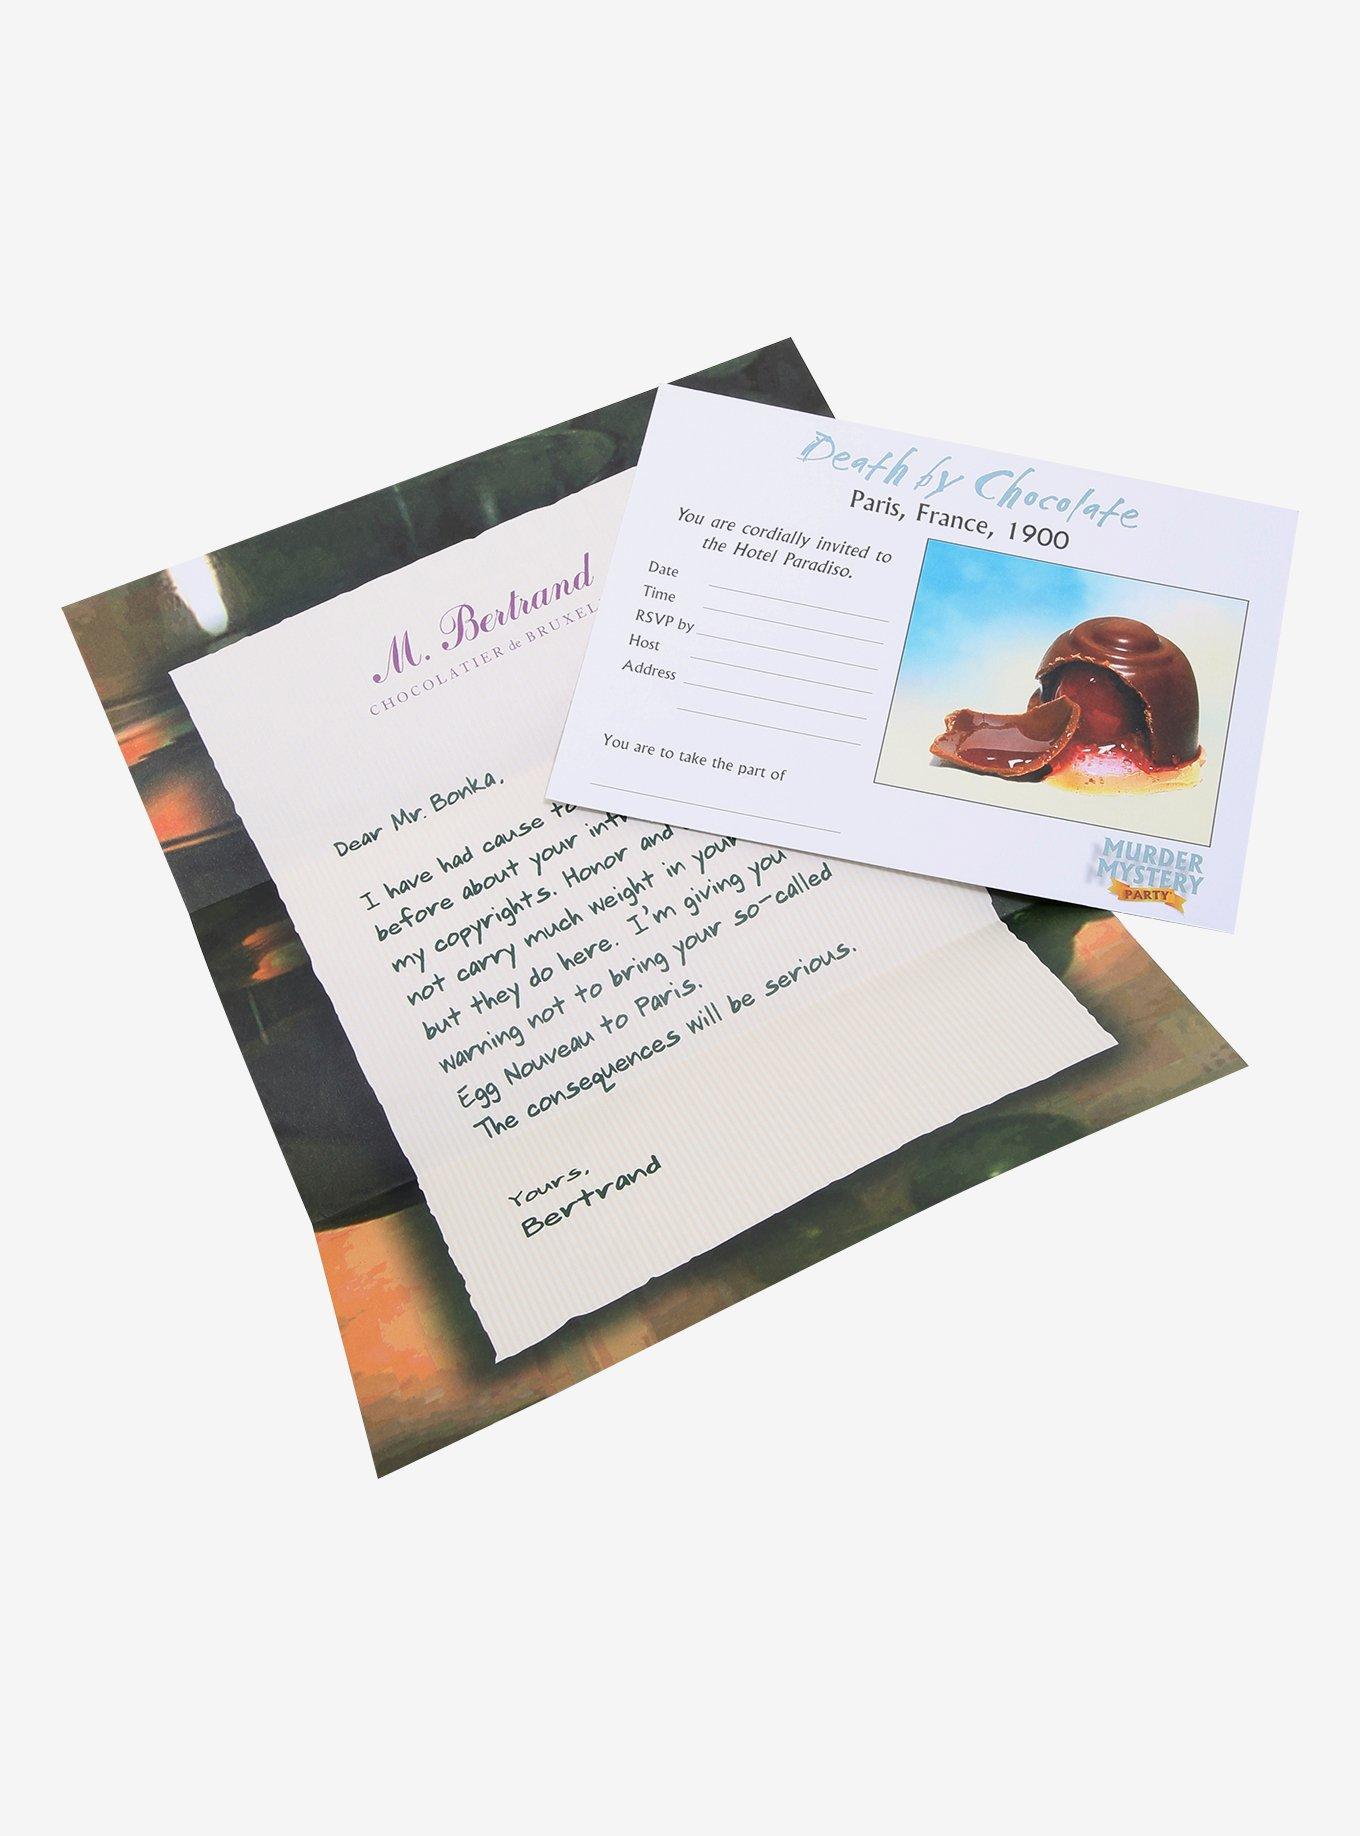 Death by Chocolate
Paris, France, 1900
You are cordially invited to
the Hotel Paradiso.
Date
Time
RSVP by
Host
Address
You are to take the part of
MURDER
MYSTERY
PARTY
M. Bertrand
CHOCOLATIER de
Dear Mr. Bonka,
I have had cause
before about your
my copyrights. Honor and
not carry much weight in your
but they do here. I'm giving you
warning not to bring your so-called
Egg Nouveau to Paris.
The consequences will be serious.
Yours,
Bertrand